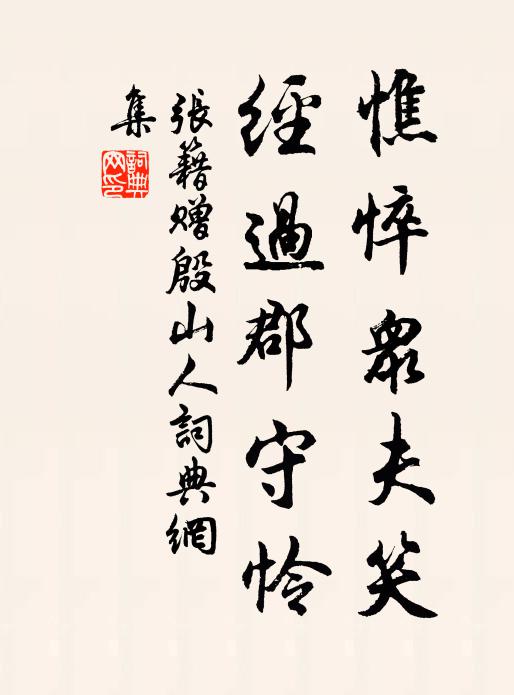 憔悴衆夫笑
經過郡守怜
張籍贈殷山人詞典網
集
詞典
网印